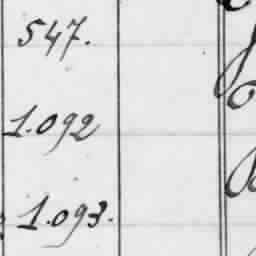 547.
1.092
1.093.